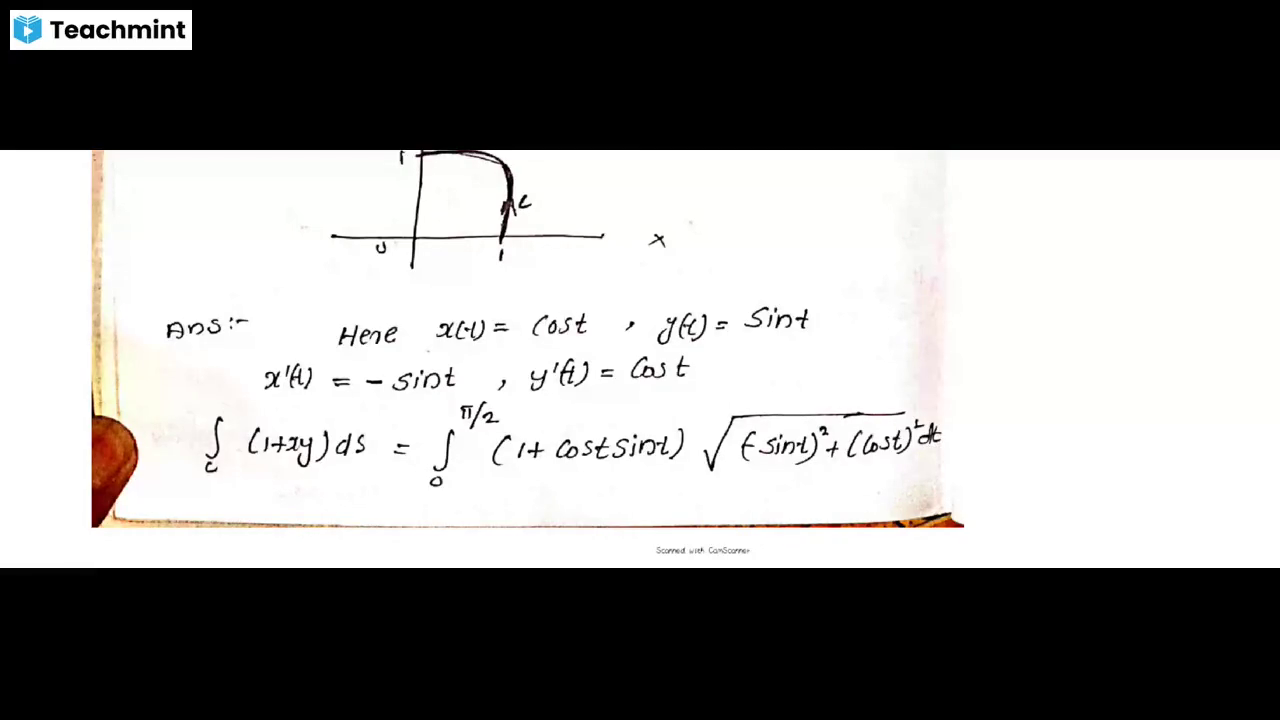 Teachmint
1
C
0
1
x
Ans:- Here x(t) = cost , y(t) = sint
x'(t) = - sint , y'(t) = cost
∫_C (1+xy) ds = ∫_0^{π/2} (1 + cost sint) √((-sint)² + (cost)²) dt
Scanned with CamScanner